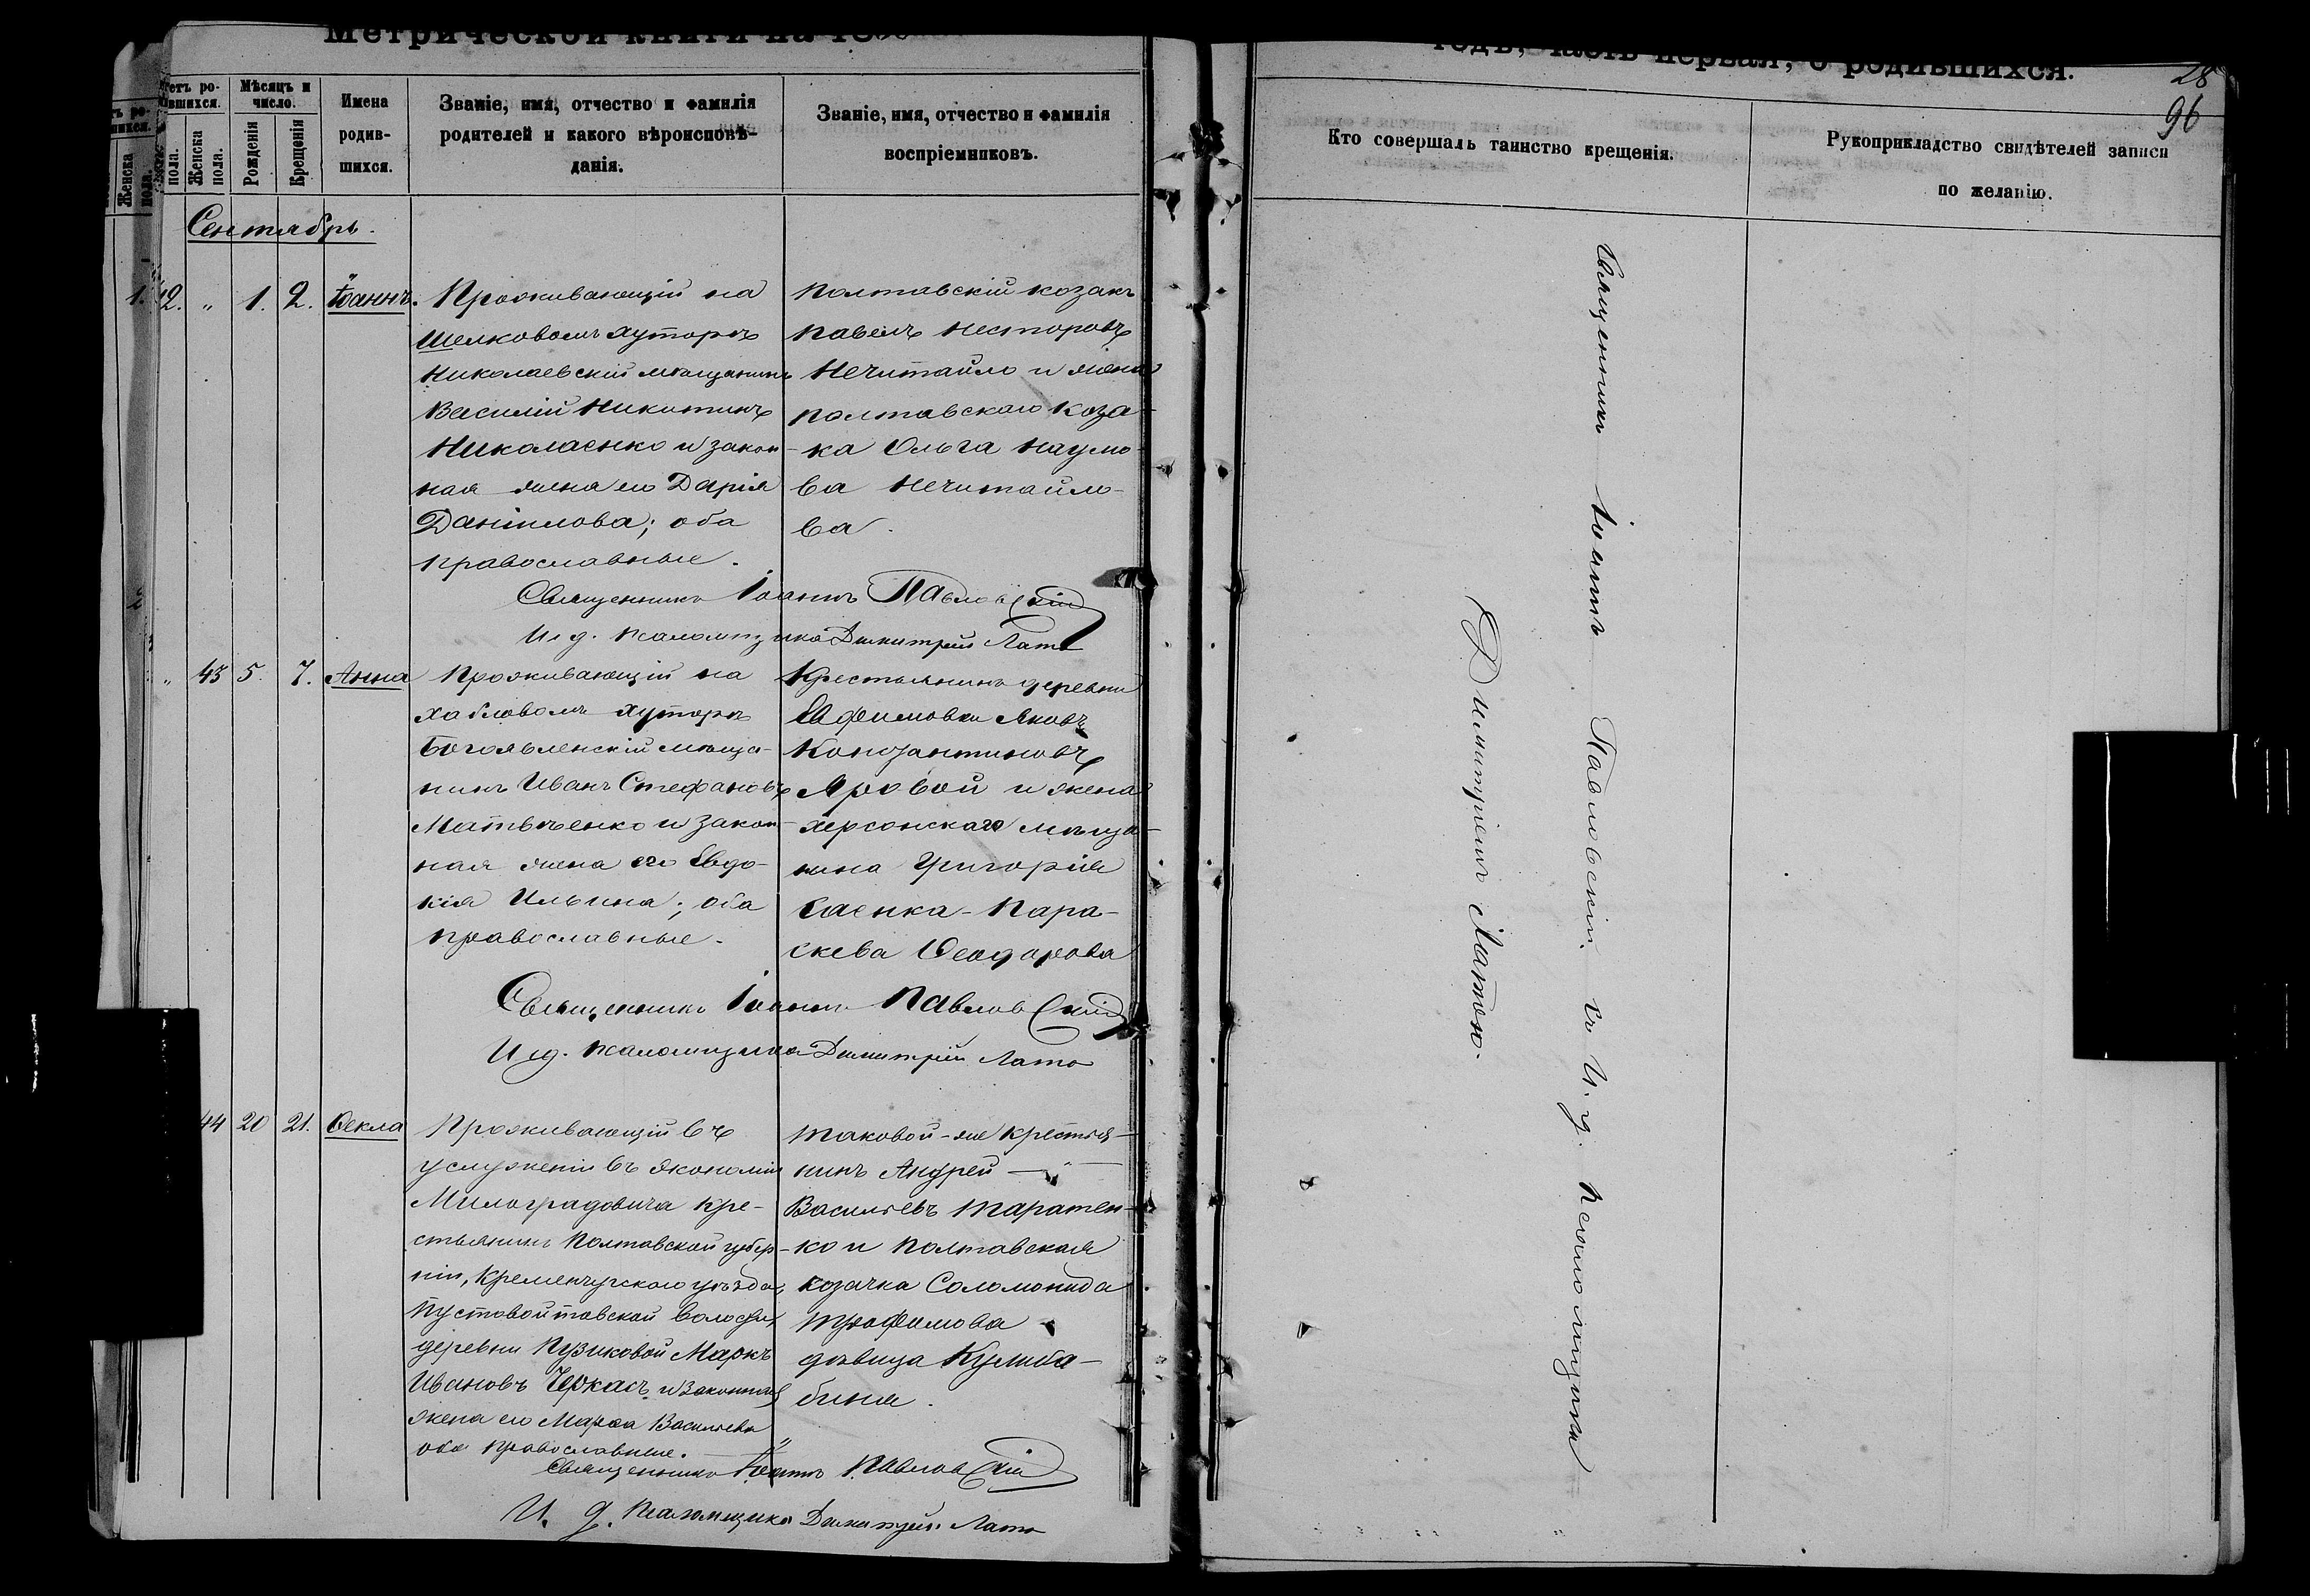 Метрической книги на 18
годъ, часть первая, о родившихся.
28
96
Мѣсяцъ и число.
Рожденія
Крещенія
Женска пола.
Имена родив-
шихся.
Званіе, имя, отчество и фамилія
родителей и какого вѣроисповѣ-
данія.
Званіе, имя, отчество и фамилія
воспріемниковъ.
Кто совершалъ таинство крещенія.
Рукоприкладство свидѣтелей записи
по желанію.
Сентябрь.
42. „ 1. 2. Іоаннъ.
Проживающій на
Шелковомъ хуторѣ
Николаевскій мѣщанинъ
Василій Никитинъ
Николаенко и закон-
ная жена его Дарія
Даніилова; оба
православные.
Полтавскій козакъ
Павелъ Несторовъ
Нечитайло и жена
полтавскаго коза-
ка Ольга Наумо-
ва Нечитайло-
ва.
Священникъ Іоаннъ Павловскій
И. д. псаломщика Димитрій Лато
„ 43 5. 7. Анна
Проживающій на
хуторѣ
Богоявленскій мѣща-
нинъ Иванъ Стефановъ
Матвѣенко и закон-
ная жена его Евдо-
кія Ильина; оба
православные.
Крестьянинъ деревни
Ефимовки Яковъ
Константиновъ
Яровой и жена
херсонскаго мѣща-
нина Григорія
Саенка - Пара-
скева Ѳеодорова
Священникъ Іоаннъ Павловскій
И. д. псаломщика Димитрій Лато
44 20 21. Ѳекла
Проживающій въ
услуженіи въ экономіи
Милорадовича кре-
стьянинъ Полтавской губер-
ніи, Кременчугскаго уѣзда,
Пустовойтовской волости,
деревни Пузиковой Маркъ
Ивановъ Черкасъ и законная
жена его Марѳа Васильева
оба православные.
таковой-же крестья-
нинъ Андрей
Васильевъ Таратен-
ко и полтавская
козачка Соломонида
Трофимова
дѣвица Кулиба-
бина.
Священникъ Іоаннъ Павловскій
И. д. псаломщика Димитрій Лато
Священникъ Іоаннъ Павловскій съ И. д. псаломщика
Димитріемъ Латою.